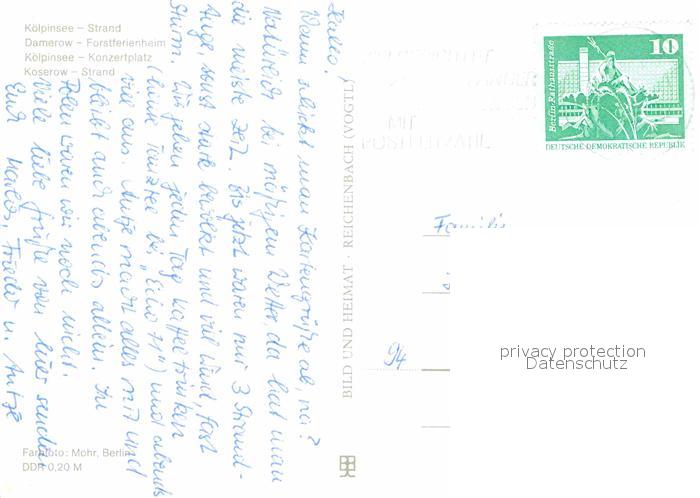 Kölpinsee – Strand
Damerow – Forstferienheim
Kölpinsee – Konzertplatz
Koserow – Strand
Hallo!
Wann schickt man Kartengrüße ab, na?
Natürlich bei mäßigem Wetter, da hat man
die meiste Zeit. Bis jetzt waren nur 3 Strand-
tage, sonst stark bewölkt und viel Wind, fast
Sturm. Wir gehen jeden Tag Kaffee trinken
(heute Tanztee bei „Eine 11") und abends
viel aus. Antje macht alles mit und
bleibt auch abends allein. In
Polen waren wir noch nicht.
Viele liebe Grüße von hier senden
Euch Frieder u. Antje
Farbfoto: Mohr, Berlin
DDR 0,20 M
BILD UND HEIMAT · REICHENBACH (VOGTL)
MIT
POSTLEITZAHL
10
Berlin-Rathausstraße
DEUTSCHE DEMOKRATISCHE REPUBLIK
Familie
94
privacy protection
Datenschutz